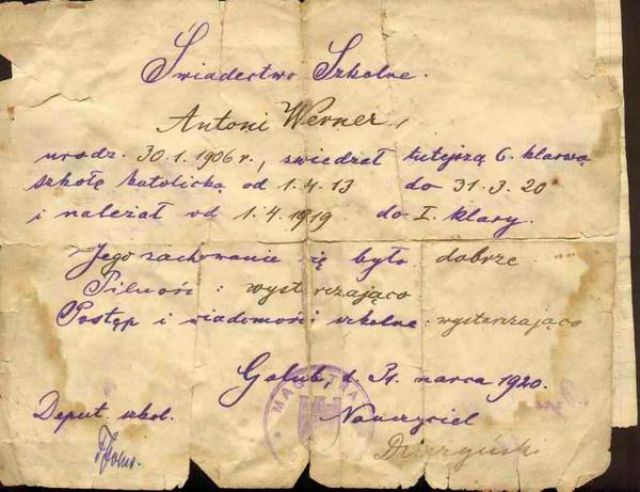 Świadectwo Szkolne.
Antoni Werner,
urodz. 30.1.1906 r., zwiedzał tutejszą 6. klasową
szkołę katolicką od 1.4.13 do 31.3.20
i należał od 1.4.1919 do I. klasy.
Jego zachowanie się było: dobrze
Pilność: wystarczająco
Postęp i wiadomości szkolne: wystarczająco
Golub, d. 31. marca 1920.
MAGISTRAT
Deput. szkol. Nauczyciel